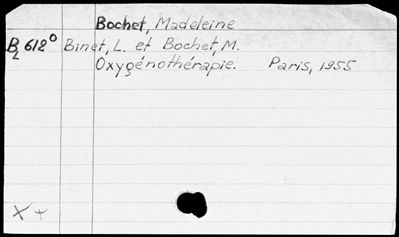 Bochet, Madeleine
B 612° Binet, L. et Bochet, M.
L
Oxygénothérapie. Paris, 1955
X +